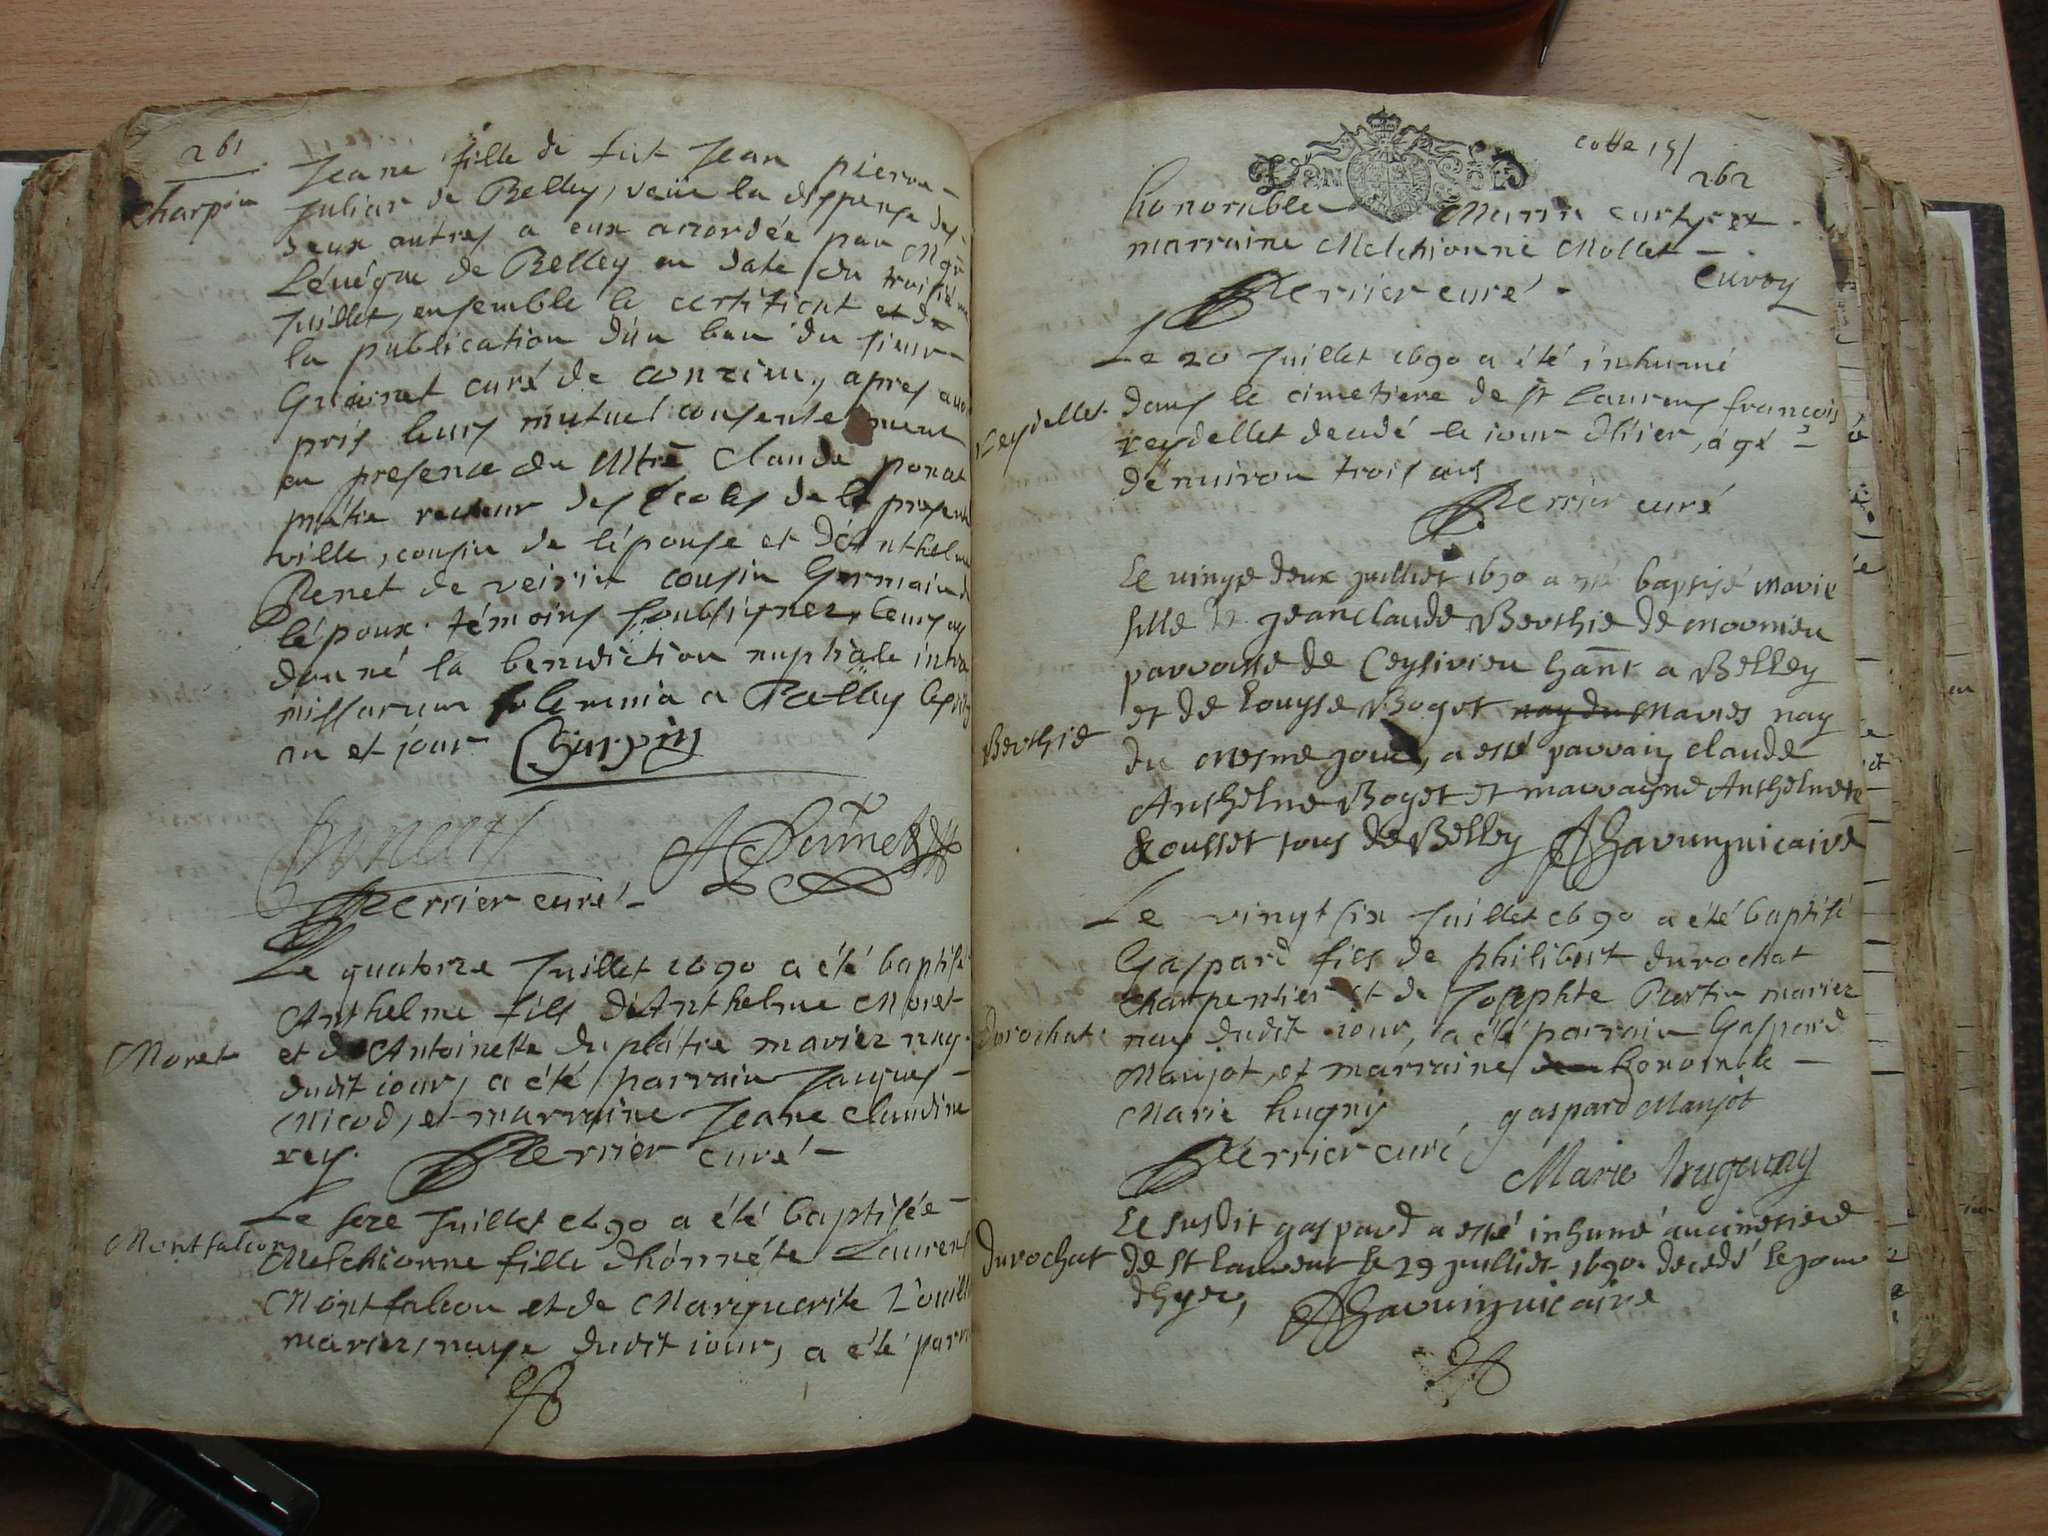 261
Charpin
Jeane fille de feit Jean pierre
Juliar de Belley, veüe la dispense des
deux autres a eux accordée par Mgr
L'évéque de Belley en date du troisié
Juillet, ensemble le certificat et de
la publication d'un ban du sieur
curé de conzieu, apres avoir
pris leurs mutuel consentement
en presence de Mtre Claude ponat
prétre recteur des Ecoles de la presente
ville, cousin de l'épouse et d'Anthelme
Penet de veirin cousin Germain de
l'époux témoins soubsignez, leurs ay
donné la benediction nuptiale intra
missarum solemnia a Belley les
an et jour Charpin
Perrier curé
Le quatorze Juillet 1690 a été baptisé
Anthelme fils d'Anthelme Moret
Moret
et de Antoinette du plâtre mariez nay
dudit iour, a été parrain Jaques
Nicod, et marraine Jeane claudine
rey. Perrier curé
Le seze Juillet 1690 a été baptisée
Montfalcon
Melchionne fille d'honnéte Laurent
Montfalcon et de Marguerite
mariez, naye dudit iour, a été parr
cotte 151
262
honorable Marin
marraine Melchionne Mollet
Cuvoy
Perrier curé
Le 20 Juillet 1690 a été inhumé
dans le cimetiere de st Laurens françois
Reydellet
reydellet decedé le iour d'hier, agé
d'environ trois ans
Perrier curé
Le vingt deux juilliet 1690 a esté baptisé Marie
fille de jeanclaude Berthie de mornieu
parroisse de Ceysirieu hant a Belley
et de Louyse Boget nay du Maries nay
Berthie
du mesme jour, a esté parrain claude
Anthelme Boget et marrayne Anthelmete
Rousset tous de Belley vicaire
Le vingt six Juillet 1690 a été baptisé
Gaspard fils de philibert durochat
charpentier et de Josephte Purtin mariez
Durochat
nay dudit iour, a été parrain Gaspard
Maujot, et marraine honorable
Marie hugniy gaspard Maujot
Perrier curé
Marie hugonay
Le susdit gaspard a esté inhumé au cimetiere
Durochat
de st Laurent le 29 juilliet 1690. decedé le jour
d'hyer, vicaire